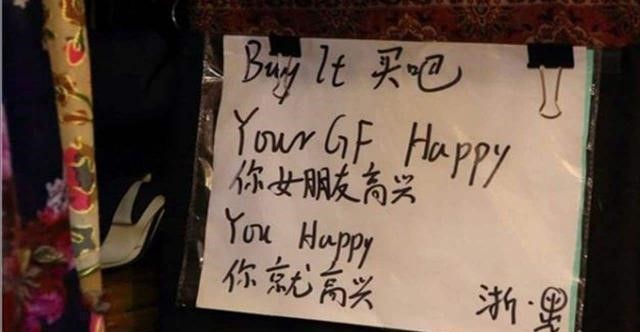 Buy It 买吧
Your GF Happy
你女朋友高兴
You Happy
你就高兴
浙·